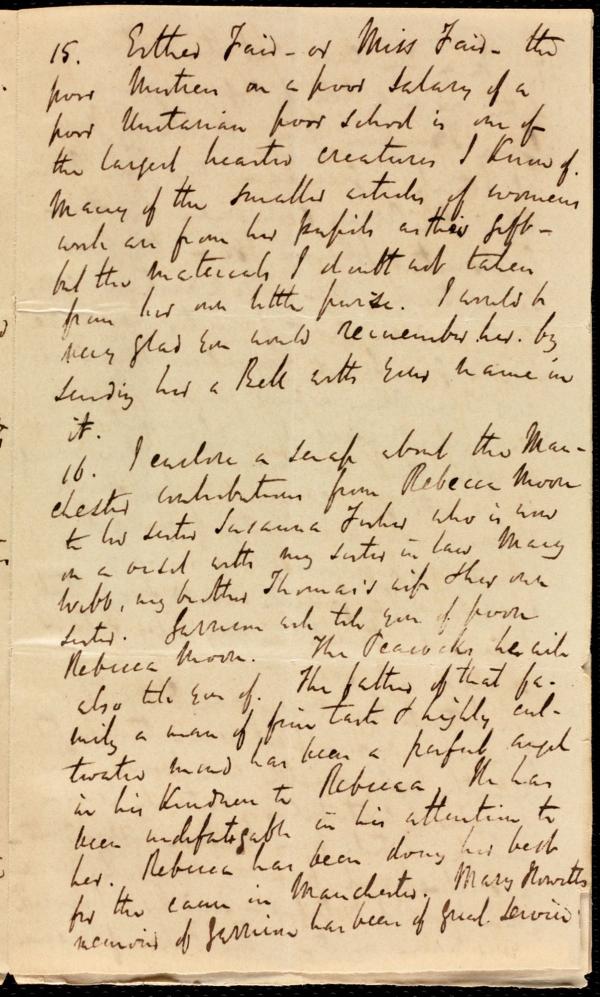 15. Esther Faid - or Miss Faid - the
poor Mistress on a poor salary of a
poor Unitarian poor school is one of
the largest hearted creatures I know of.
Many of the smaller articles of womens
work are from her pupils as their gift -
but the materials I doubt not taken
from her own little purse. I would be
very glad you would remember her. by
sending her a Bell with your name in
it.
16. I enclose a scrap about the Man-
chester contributions from Rebecca Moore
to her sister Susanna Fisher who is now
on a visit with my sister in law Mary
Webb, my brother Thomas's wife & her own
sister. Garrison will tell you of poor
Rebecca Moore. The Peacocks he will
also tell you of. The father of that fa-
mily a man of fine taste & highly cul-
tivated mind has been a perfect angel
in his kindness to Rebecca. He has
been indefatigable in his attention to
her. Rebecca has been doing her best
for the cause in Manchester. Mary Howitts
memoir of Garrison has been of great service